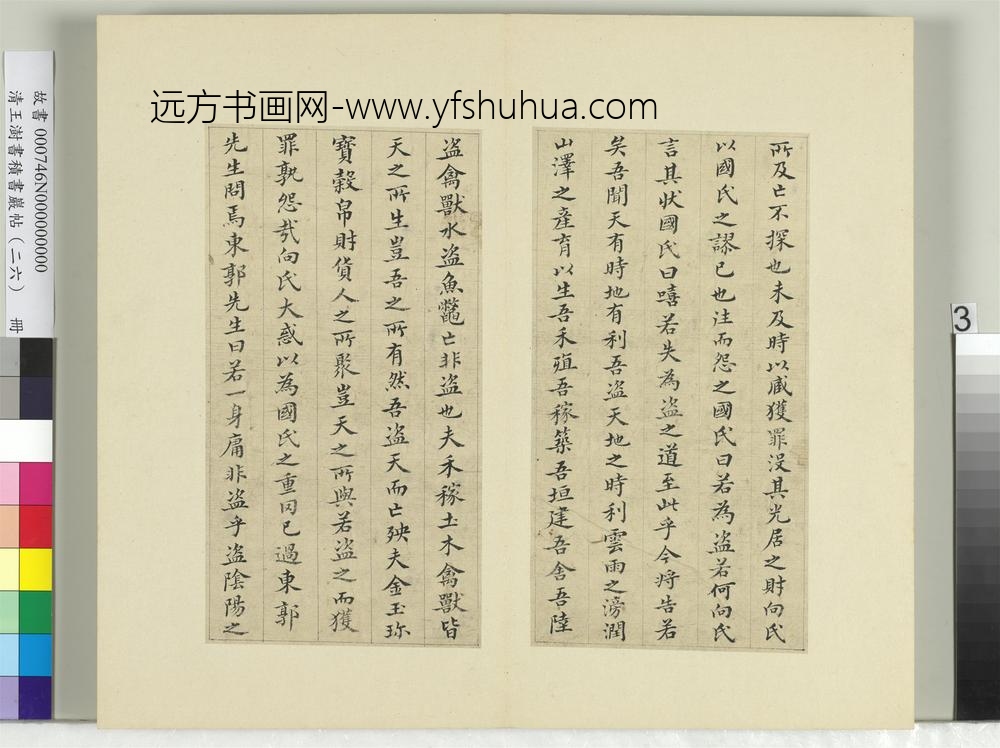 远方书画网-www.yfshuhua.com
故書 000746N000000000
清王澍書積書巖帖(二六) 冊
3
所及亡不探也未及時以贓獲罪沒其先居之財向氏
以國氏之謬己也往而怨之國氏曰若為盜若何向氏
言其狀國氏曰嘻若失為盜之道至此乎今將告若
矣吾聞天有時地有利吾盜天地之時利雲雨之滂潤
山澤之產育以生吾禾殖吾稼築吾垣建吾舍吾陸
盜禽獸水盜魚鼈亡非盜也夫禾稼土木禽獸皆
天之所生豈吾之所有然吾盜天而亡殃夫金玉珎
寶穀帛財貨人之所聚豈天之所與若盜之而獲
罪孰怨哉向氏大惑以為國氏之重罔己過東郭
先生問焉東郭先生曰若一身庸非盜乎盜陰陽之